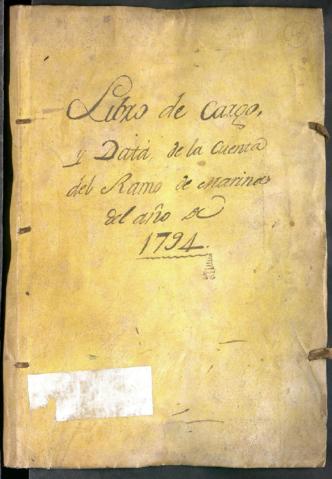 Libro de Cargo,
y Data, de la Cuenta
del Ramo de Marina
del año de
1794.